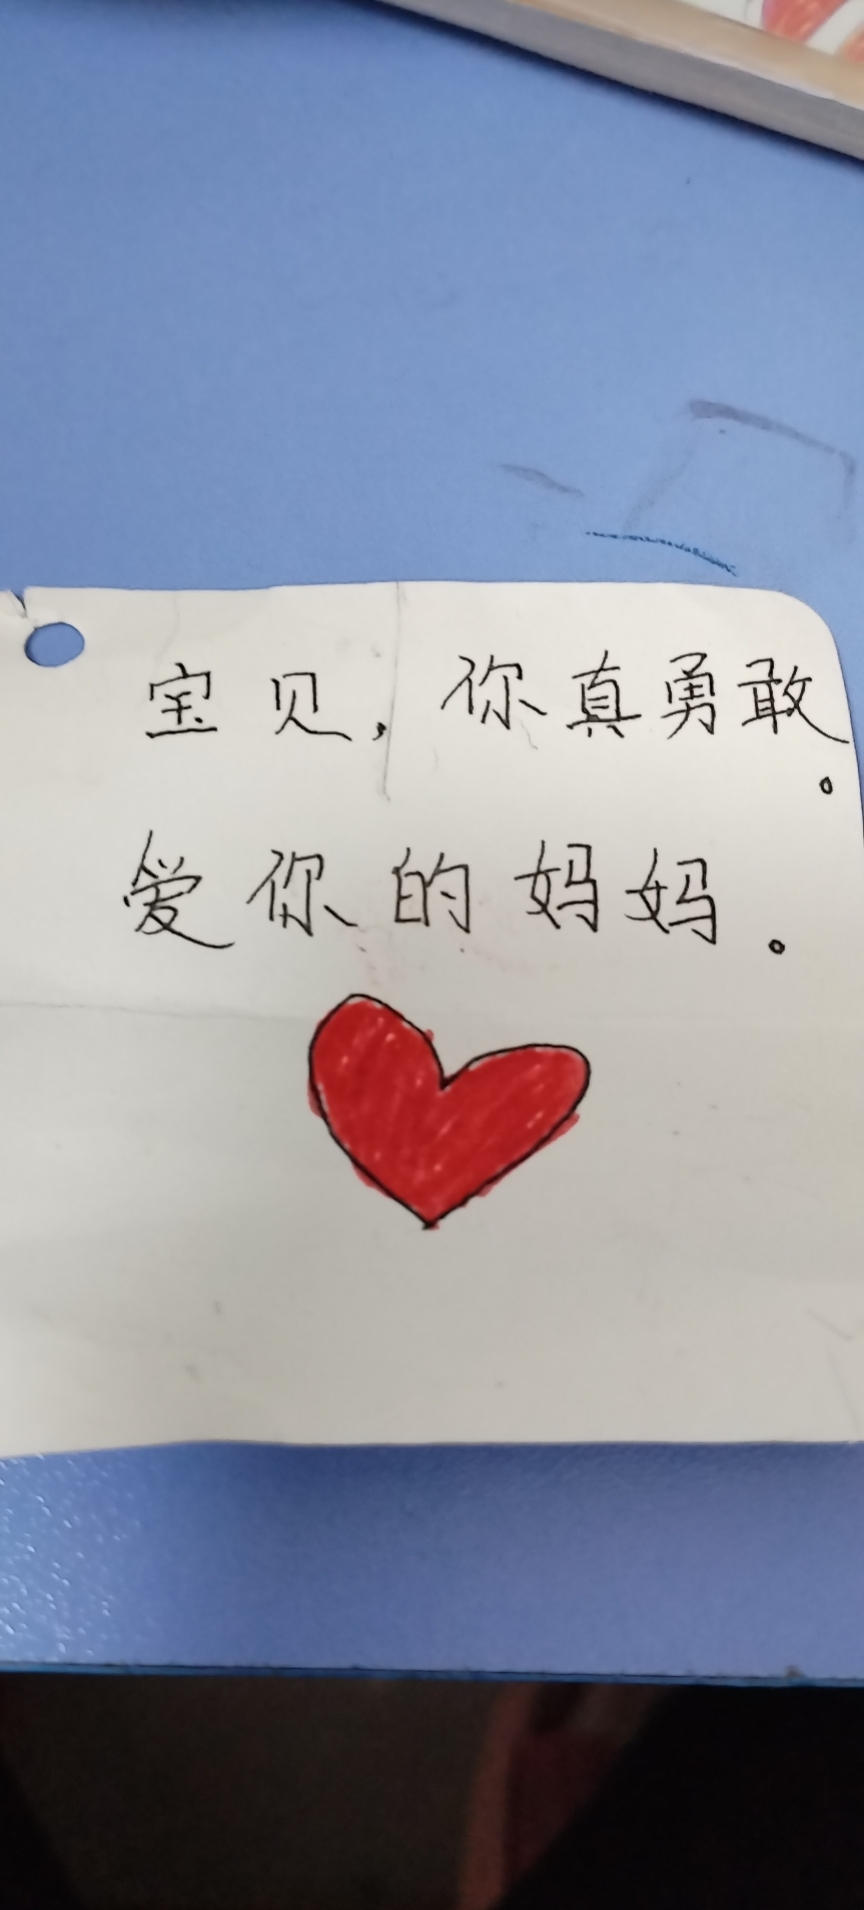 宝贝，你真勇敢。
爱你的妈妈。